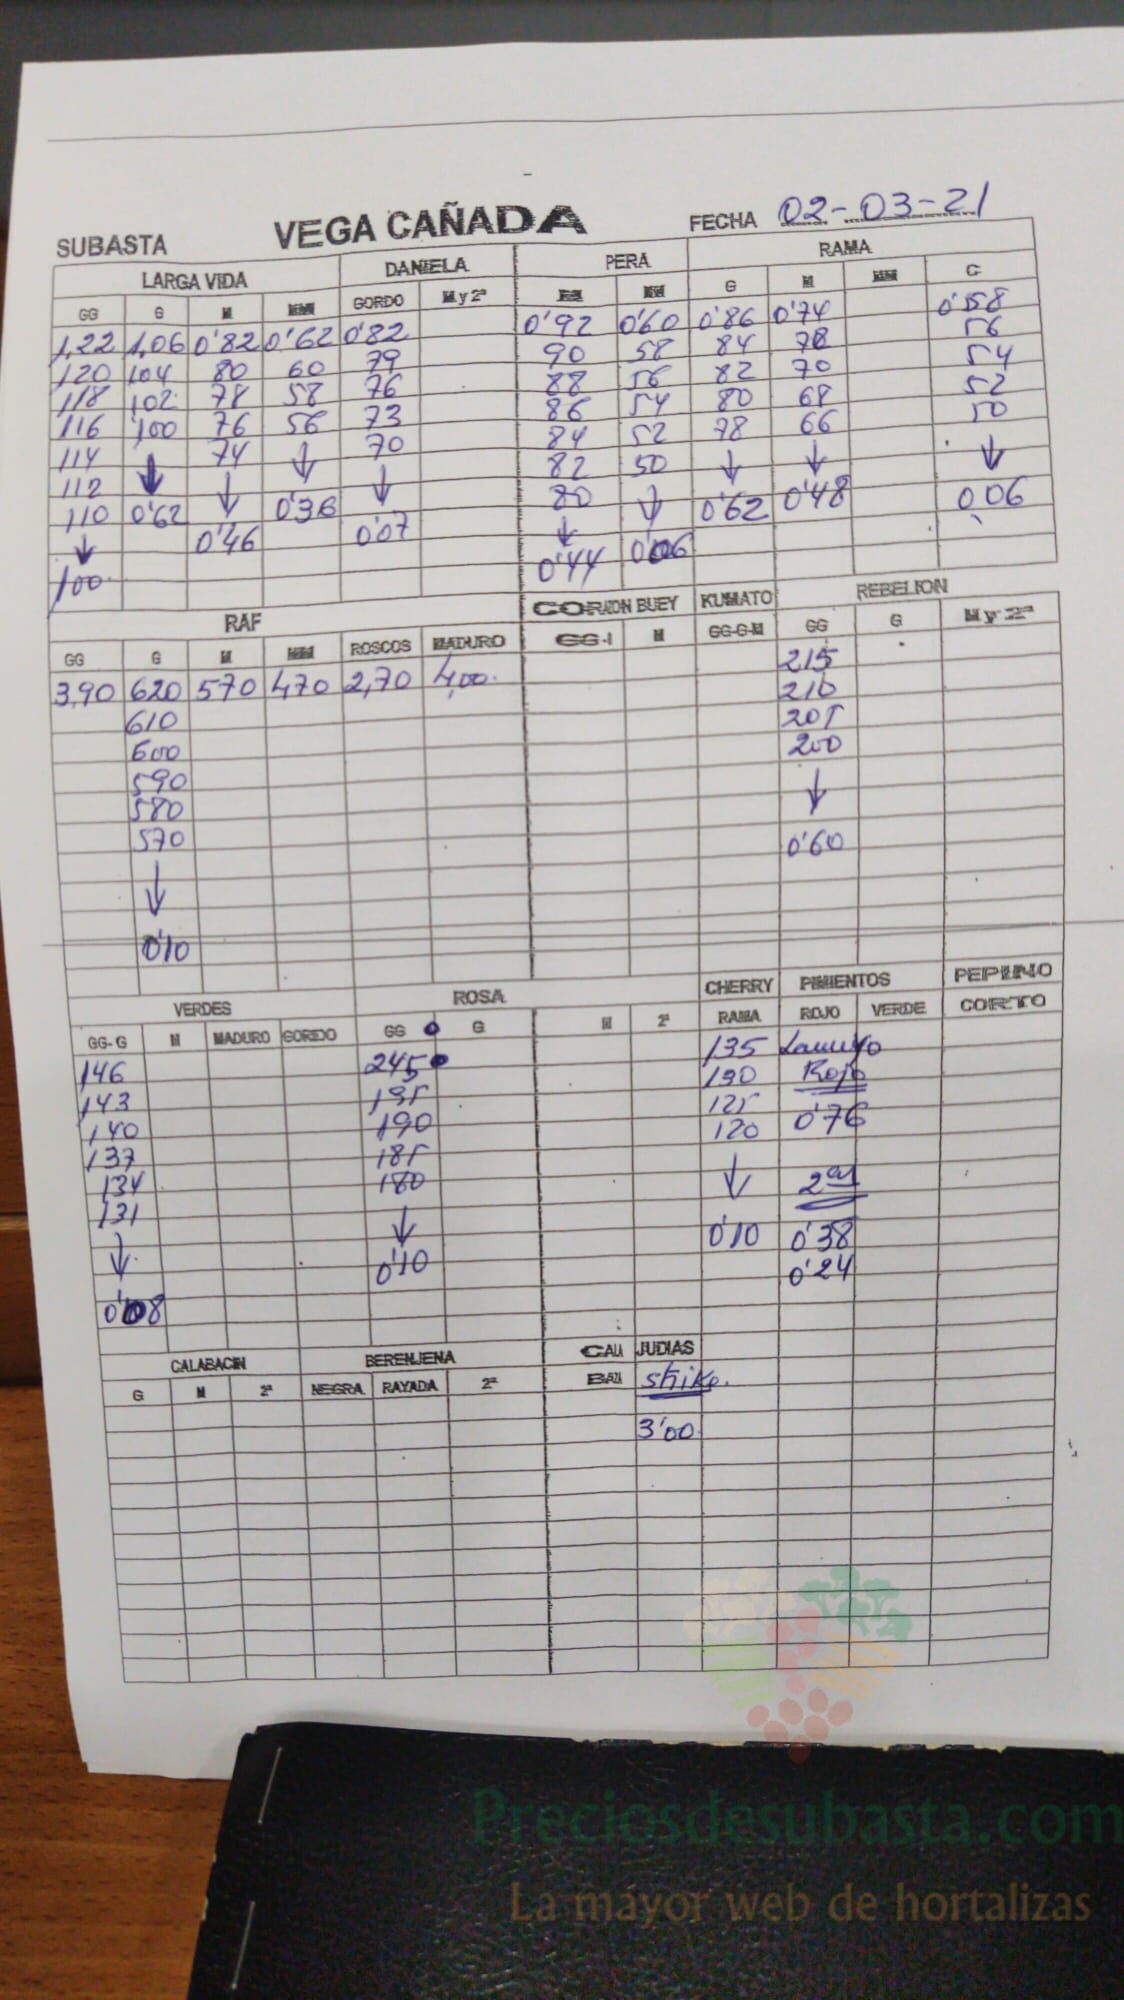 SUBASTA VEGA CAÑADA FECHA 02-03-21
LARGA VIDA DANIELA PERA RAMA
GG G M MM GORDO M y 2ª MM G M MM C
1,22 1,06 0'82 0'62 0'82 0'92 0'60 0'86 0'74 0'58
120 104 80 60 79 90 58 84 70 56
118 102 78 58 76 88 56 82 68 54
116 100 76 56 73 86 54 80 66 52
114 ↓ 74 ↓ 70 84 52 78 ↓ 50
112 ↓ ↓ 82 50 ↓ ↓
110 0'62 0'36 80 ↓ 0'62 0'48 0,06
↓ 0'46 0'07 ↓
100 0'44 0'06
RAF CORAZON BUEY KUMATO REBELION
GG G M MM ROSCOS MADURO GG-I M GG-G-M GG G M y 2ª
3,90 620 570 470 2,70 4,00. 215
610 210
600 205
590 200
580 ↓
570 0'60
↓
0'10
VERDES ROSA CHERRY PIMIENTOS PEPINO
GG-G M MADURO GORDO GG G M 2ª RAMA ROJO VERDE CORTO
146 245 135 Lamuyo
143 195 130 Rojo
140 190 125 0'76
137 185 120
134 180 ↓ 2as
131 ↓ 0'10 0'38
↓ 0'10 0'24
0'08
CALABACIN BERENJENA CALA JUDIAS
G M 2ª NEGRA RAYADA 2ª BAZA strike.
3'00
Preciosdesubasta.com
La mayor web de hortalizas